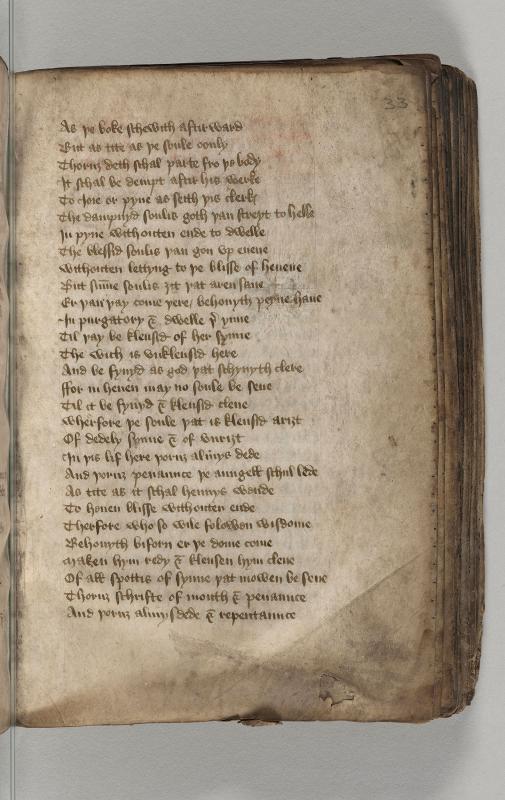 33
As þe boke schewith aftirward
But as tite as þe soule oonly
Thorw deth schal parte fro þs body
It schal be dempt aftir his werke
To Joie or pyne as seith þis clerk
The dampnyd soulis goth þan streyt to helle
In pyne withouten ende to dwelle
The blessid soulis þan gon vp euene
Withouten lettyng to þe blisse of heuene
But sum̄e soulis ȝit þat aren saue
Er þan þay come þere behouyth peyne haue
In purgatory & dwelle þ̉ ynne
Til þay be klensid of her synne
The wich is vnklensid here
And be fynyd as god þat schynyth clere
ffor in heuen may no soule be sene
Til it be fynyd & klensid clene
Wherfore þe soule þat is klensid ariȝt
Of dedely synne & of vnriȝt
In þis lif here þorw almys dede
And þorw penaunce þe aungell schul lede
As tite as it schal hennys wende
To heuen blisse withouten ende
Therfore who so wile folowen wisdome
Behouyth biforn er þe dome come
Maken hym redy & klensen hym clene
Of all spottis of synne þat mowen be sene
Thorw schrifte of mouth & penaunce
And þorw almysdede & repentaunce